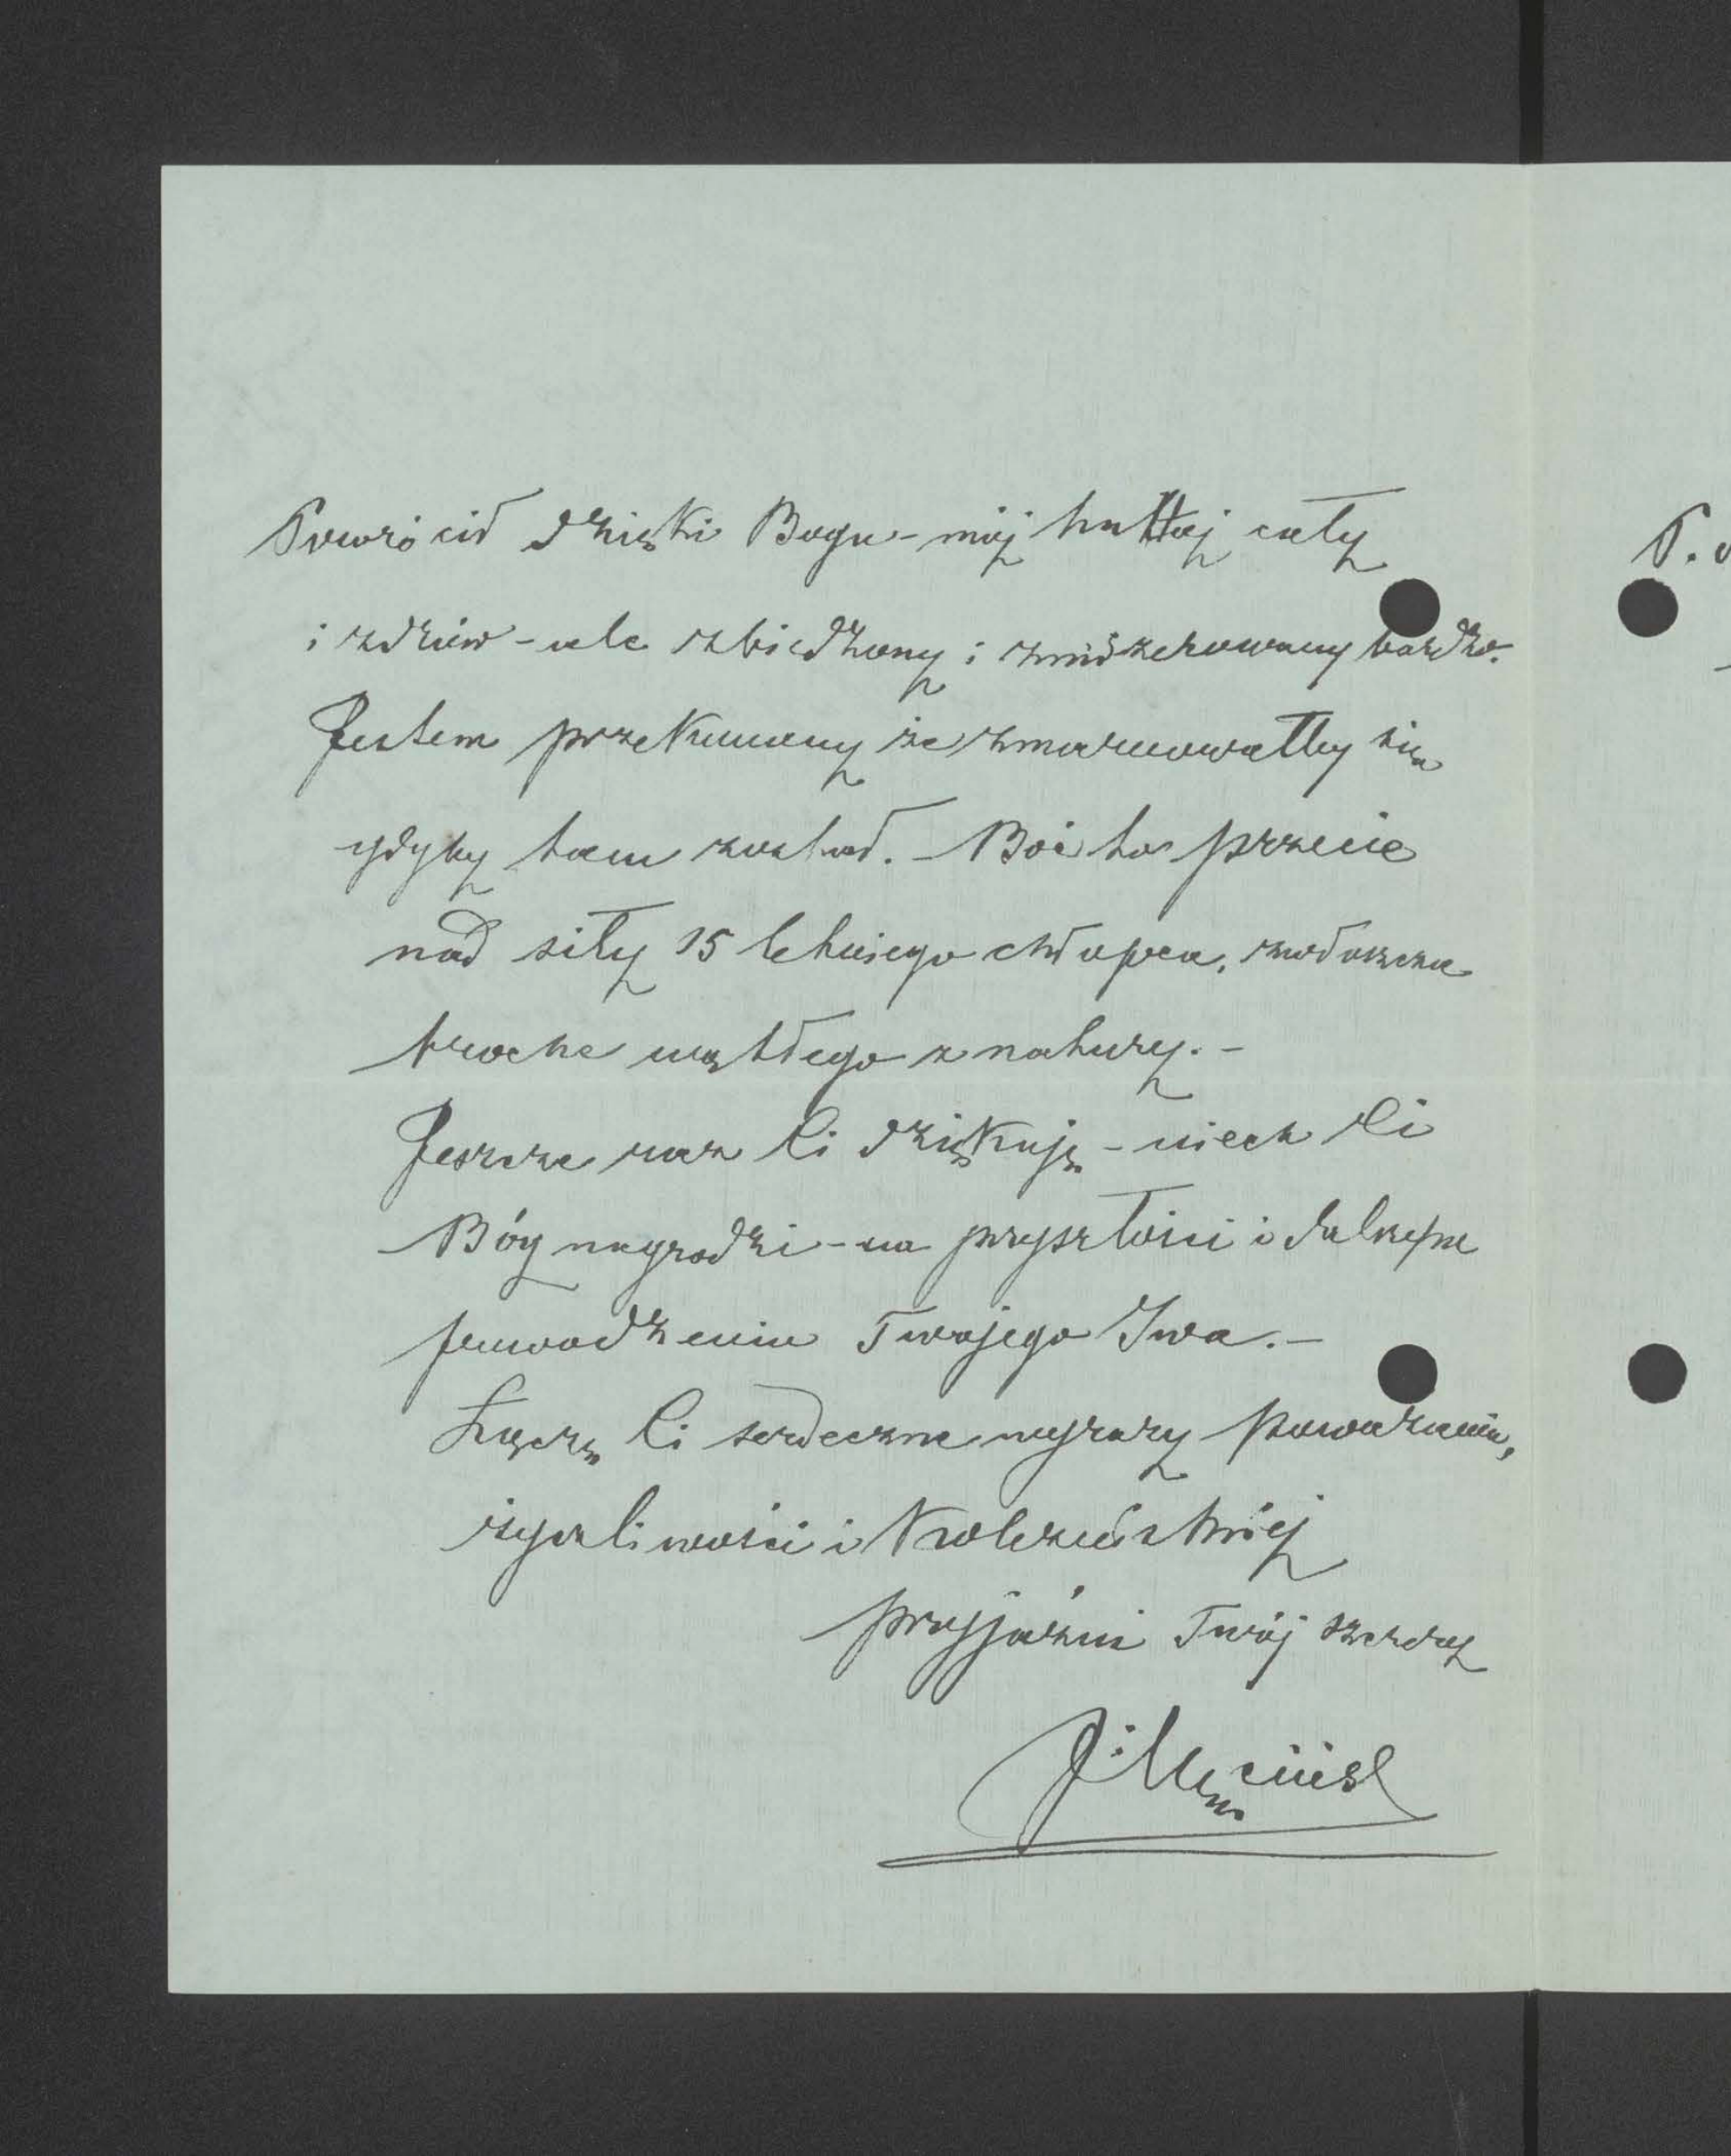 Powrócił dzięki Bogu - mój hultaj cały
i zdrów - ale zbiedzony i zmizerowany bardzo.
Jestem przekonany że zmarnowałby się
gdyby tam został. - Boć to przecie
nad siły 15 letniego chłopca, zwłaszcza
troche wątłego z natury. -
Jeszcze raz Ci dziękuję - niech Ci
Bóg nagrodzi - na przyszłości i dalszem
powodzeniu Twojego Iwa. -
Łączę Ci serdeczne wyrazy poważania,
życzliwości i koleżeńskiej
przyjaźni Twój szczery
P.